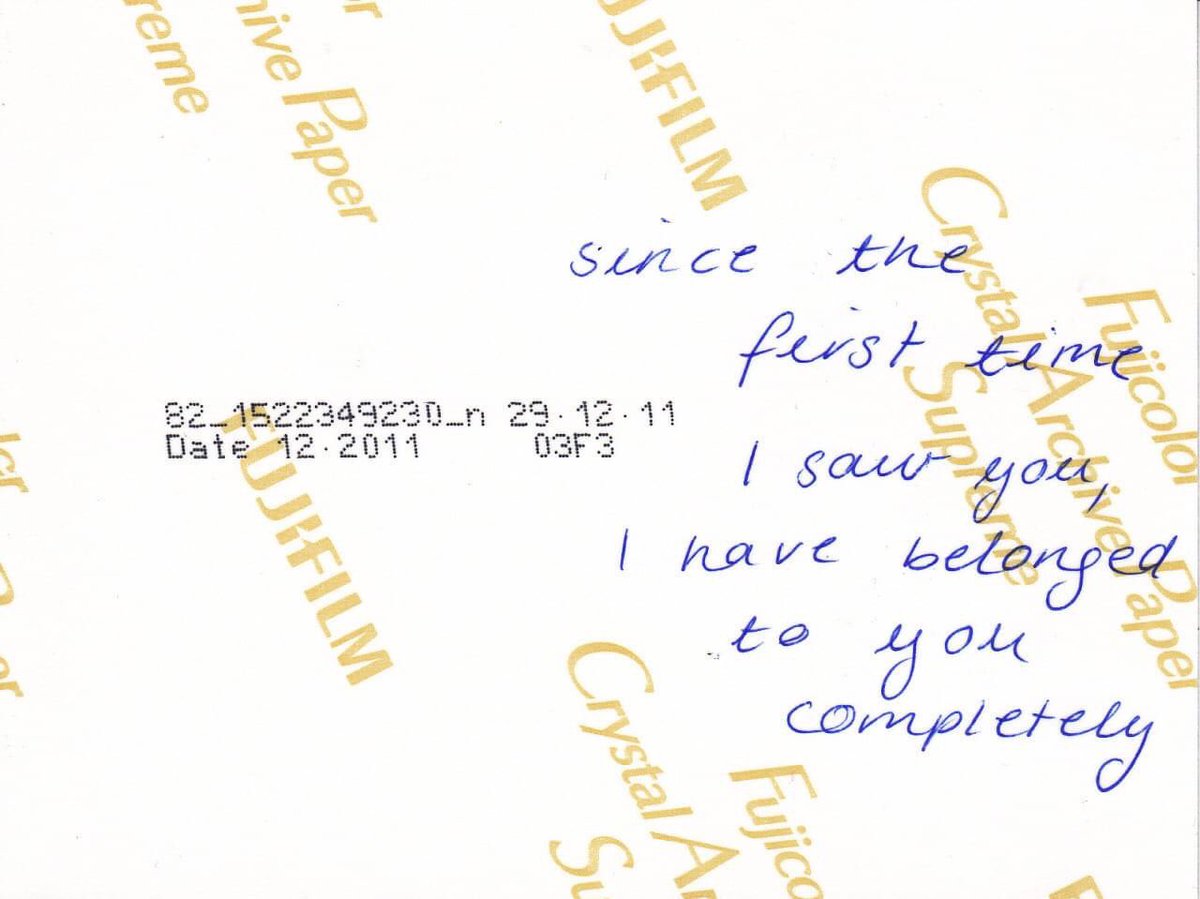 reme
hive Paper
or
FUJIFILM
since the
first time
82_1522349230_n 29.12.11
Date 12.2011 03F3
I saw you,
I have belonged
to you
completely
Fujicolor
Crystal Archive Paper
Supreme
FUJIFILM
Crystal A
Fujico
Su